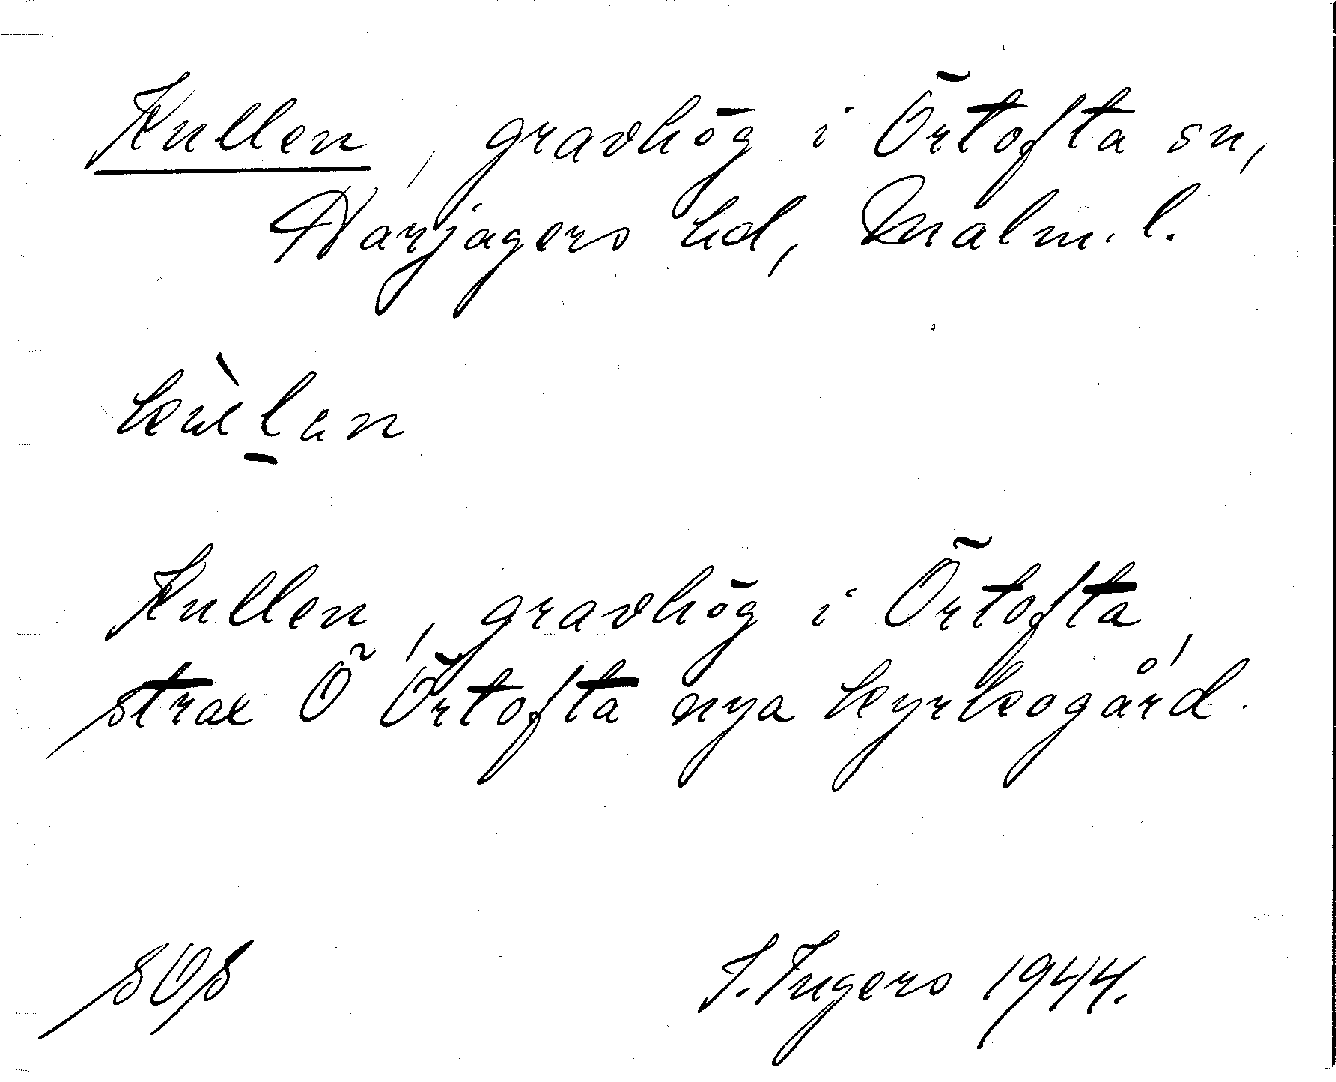 Kullen, gravhög i Örtofta sn,
Harjagers hd, Malm. l.
Kullen, gravhög i Örtofta,
strax Ö Örtofta nya kyrkogård.
I. Ingers 1944.